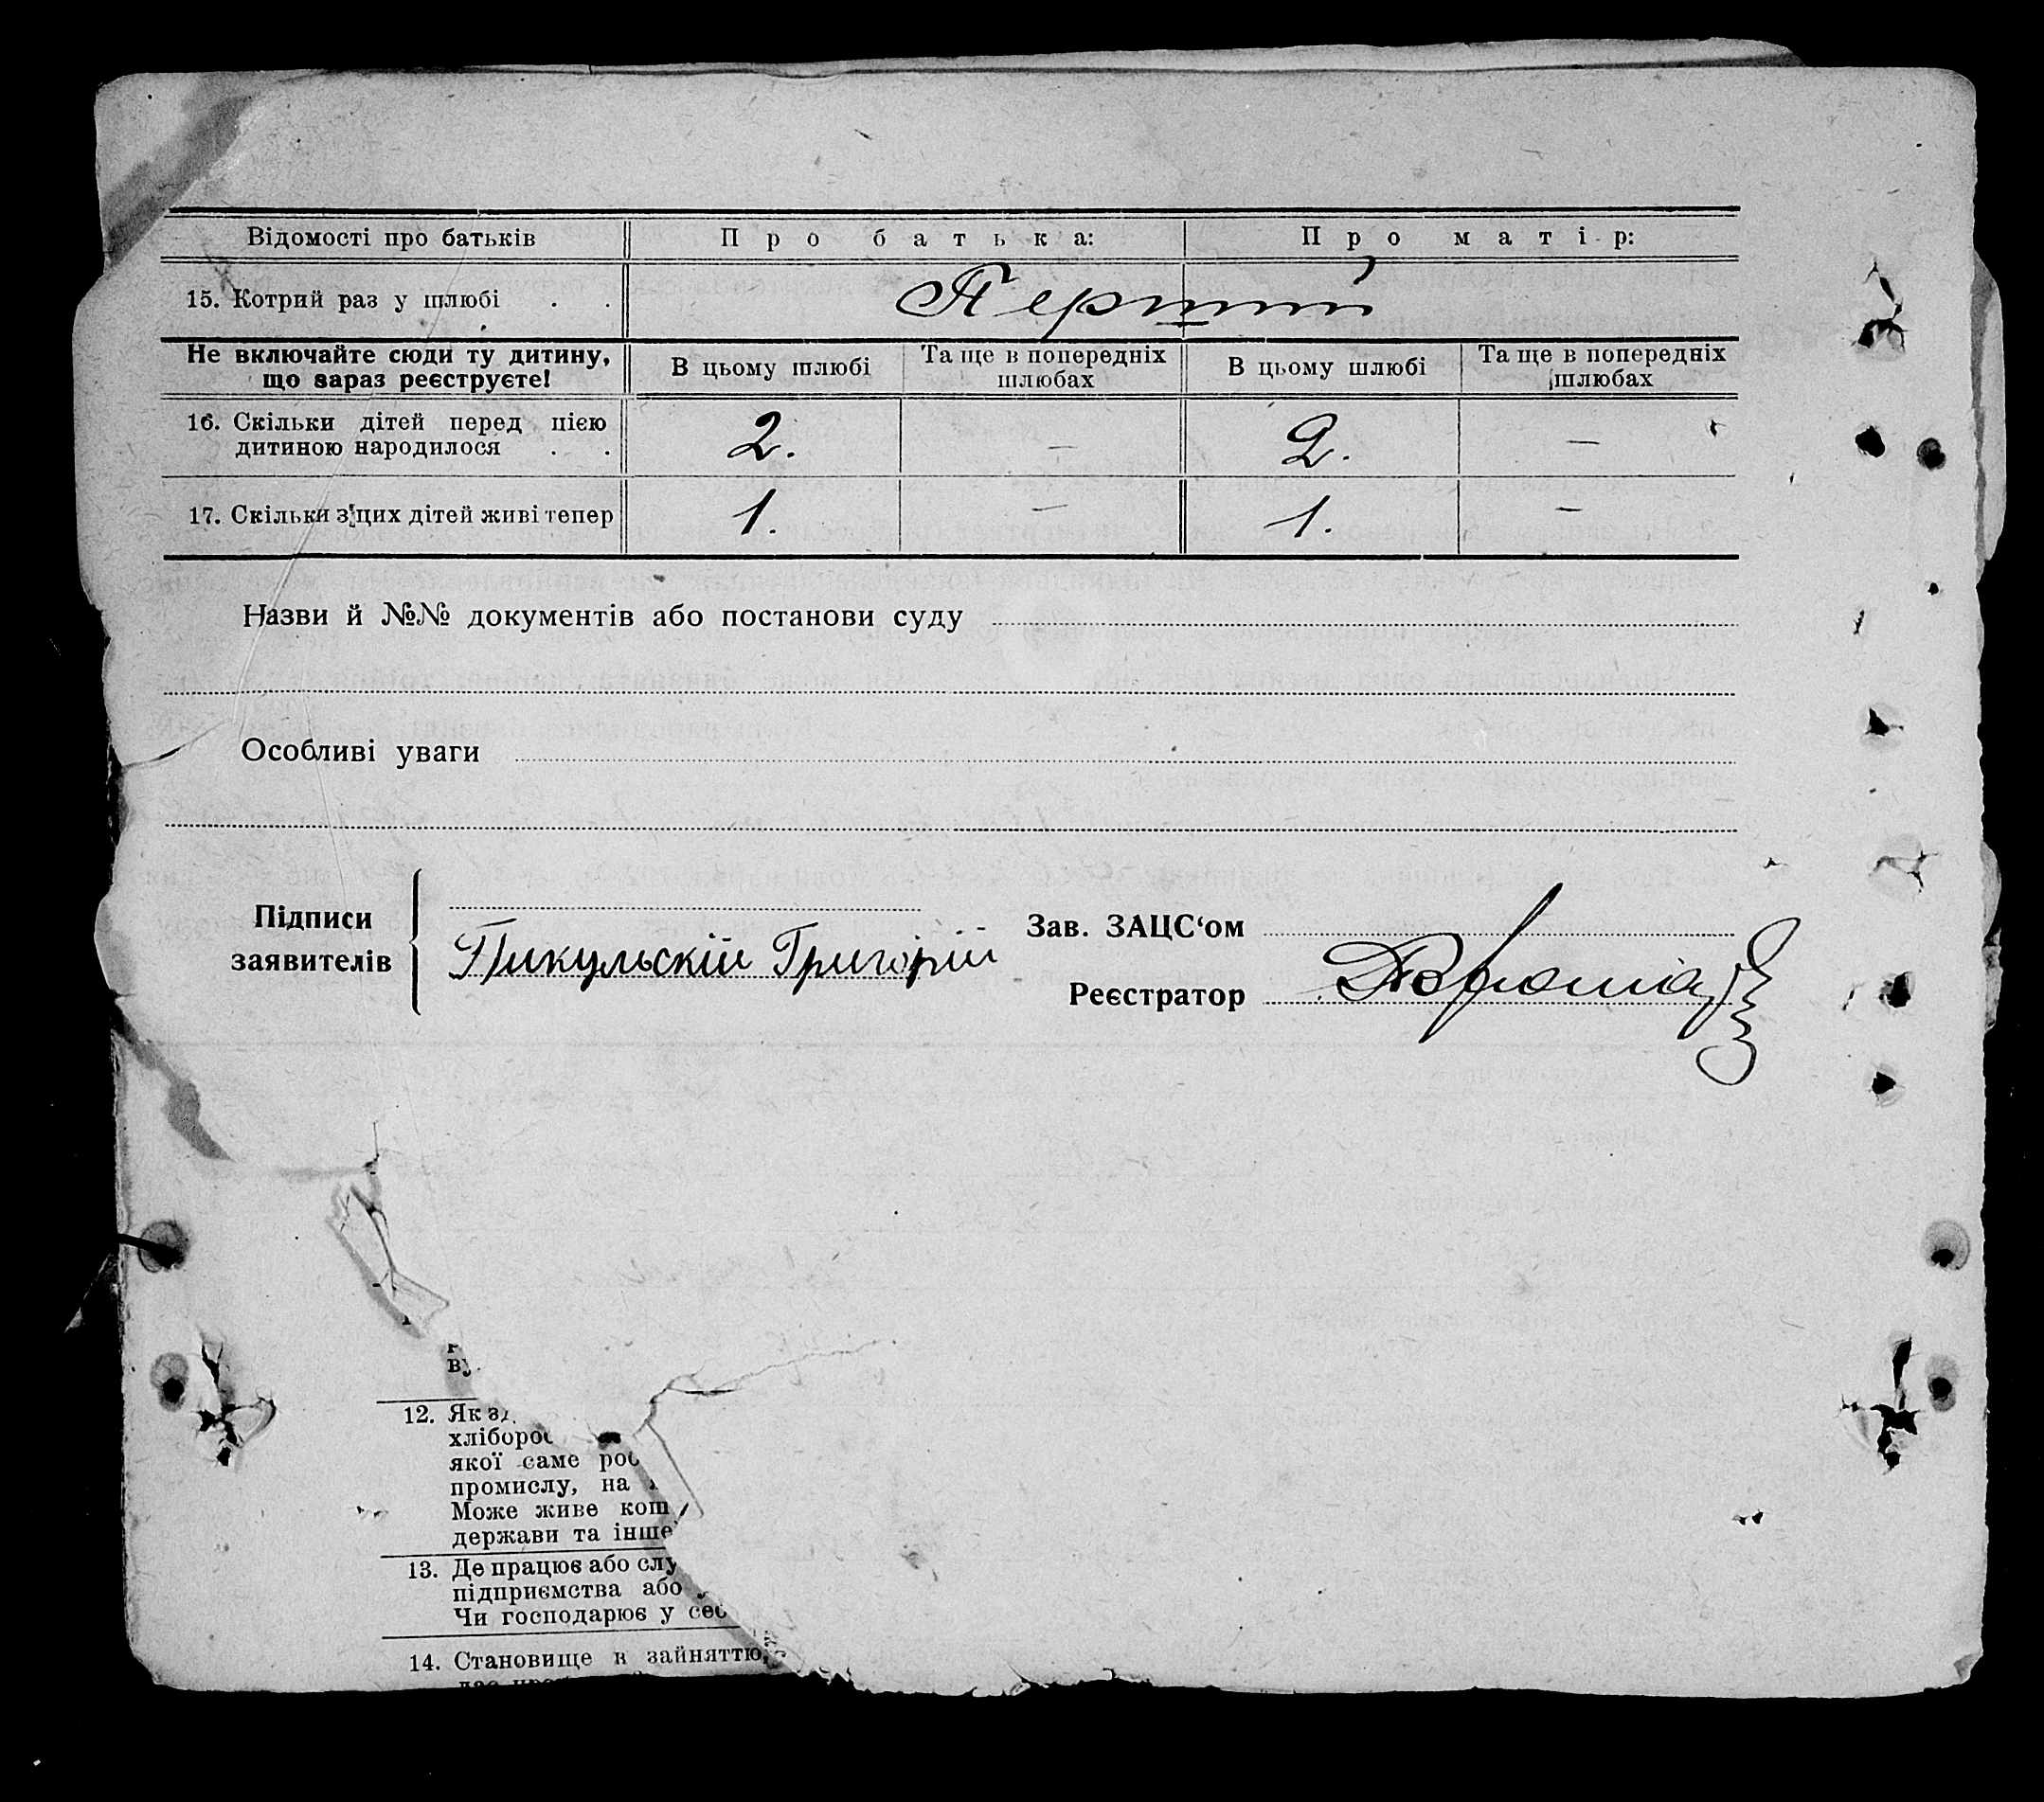 Відомості про батьків Про батька: Про матір:
15. Котрий раз у шлюбі . . Перший
Не включайте сюди ту дитину, що зараз реєструєте!
В цьому шлюбі Та ще в попередніх шлюбах В цьому шлюбі Та ще в попередніх шлюбах
16. Скільки дітей перед цією
дитиною народилося . . 2. — 2. —
17. Скільки з цих дітей живі тепер 1. — 1. —
Назви й №№ документів або постанови суду
Особливі уваги
Підписи
заявителів
Пикульскій Григорій
Зав. ЗАЦС‘ом
Реєстратор
ву
12. Як з
хліборо
якої саме роб
промислу, на
Може живе кош
держави та інше
13. Де працює або слу
підприємства або
Чи господарює у себ
14. Становище в зайняттю,